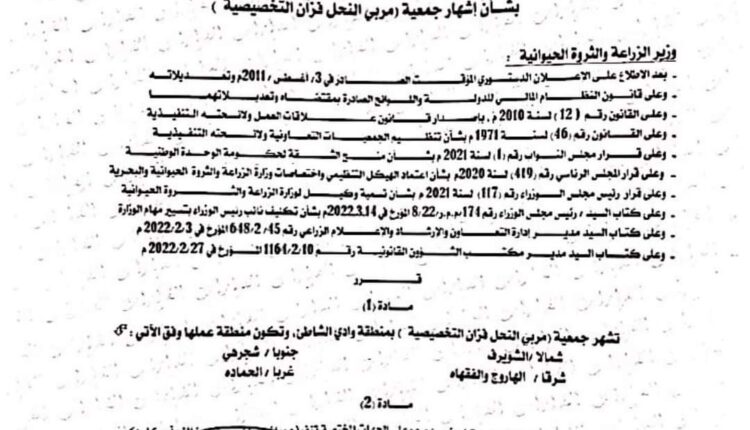 بشأن إشهار جمعية (مربي النحل فزان التخصيصية )
وزير الزراعة والثروة الحيوانية :
- بعد الاطلاع على الاعـلان الدستوري المؤقت الصـادر في 3/ أغسطس /2011م وتعديلاته
- وعلى قانون النظـام المالي للدولـة واللوائح الصادرة بمقتضاه وتعديلاتهما
- وعلى القانون رقم (12) لسنة 2010 م , بإصدار قانون علاقات العمل ولائحته التنفيذية
- وعلى القـانون رقم (46) لسنة 1971م بشأن تنظيم الجمعيات التعاونية ولائحته التنفيذية
- وعلى قرار مجلس النواب رقم (1) لسنة 2021م بشأن منح الثقة لحكومة الوحدة الوطنية
- وعلى قرار المجلس الرئاسي رقم (419) لسنة 2020م بشأن اعتماد الهيكل التنظيمي واختصاصات وزارة الزراعة والثروة الحيوانية والبحرية
- وعلى قرار رئيس مجلس الوزراء رقم (117) لسنة 2021م بشأن تسمية وكيل لوزارة الزراعة والثروة الحيوانية
- وعلى كتاب السيد / رئيس مجلس الوزراء رقم 174م.م.ر/8/22 المؤرخ في 2022.3.14م بشأن تكليف نائب رئيس الوزراء بتسيير مهام الوزارة
- وعلى كتاب السيد مدير إدارة التعاون والإرشاد والاعلام الزراعي رقم 648/2/45 المؤرخ في 2022/2/3 م
- وعلى كتـاب السيد مديـر مكتـب الشـؤون القانونية رقـم 1164/2/10 المـؤرخ في 2022/2/27 م
قـرر
مـادة (1)
تشهر جمعية (مربي النحل فزان التخصيصية ) بمنطقة وادي الشاطئ، وتكون منطقة عملها وفق الآتي :
شمالا / الشويرف جنوبا / شجرهي
شرقا / الهاروج والفقهاه غربا / الحماده
مـادة (2)